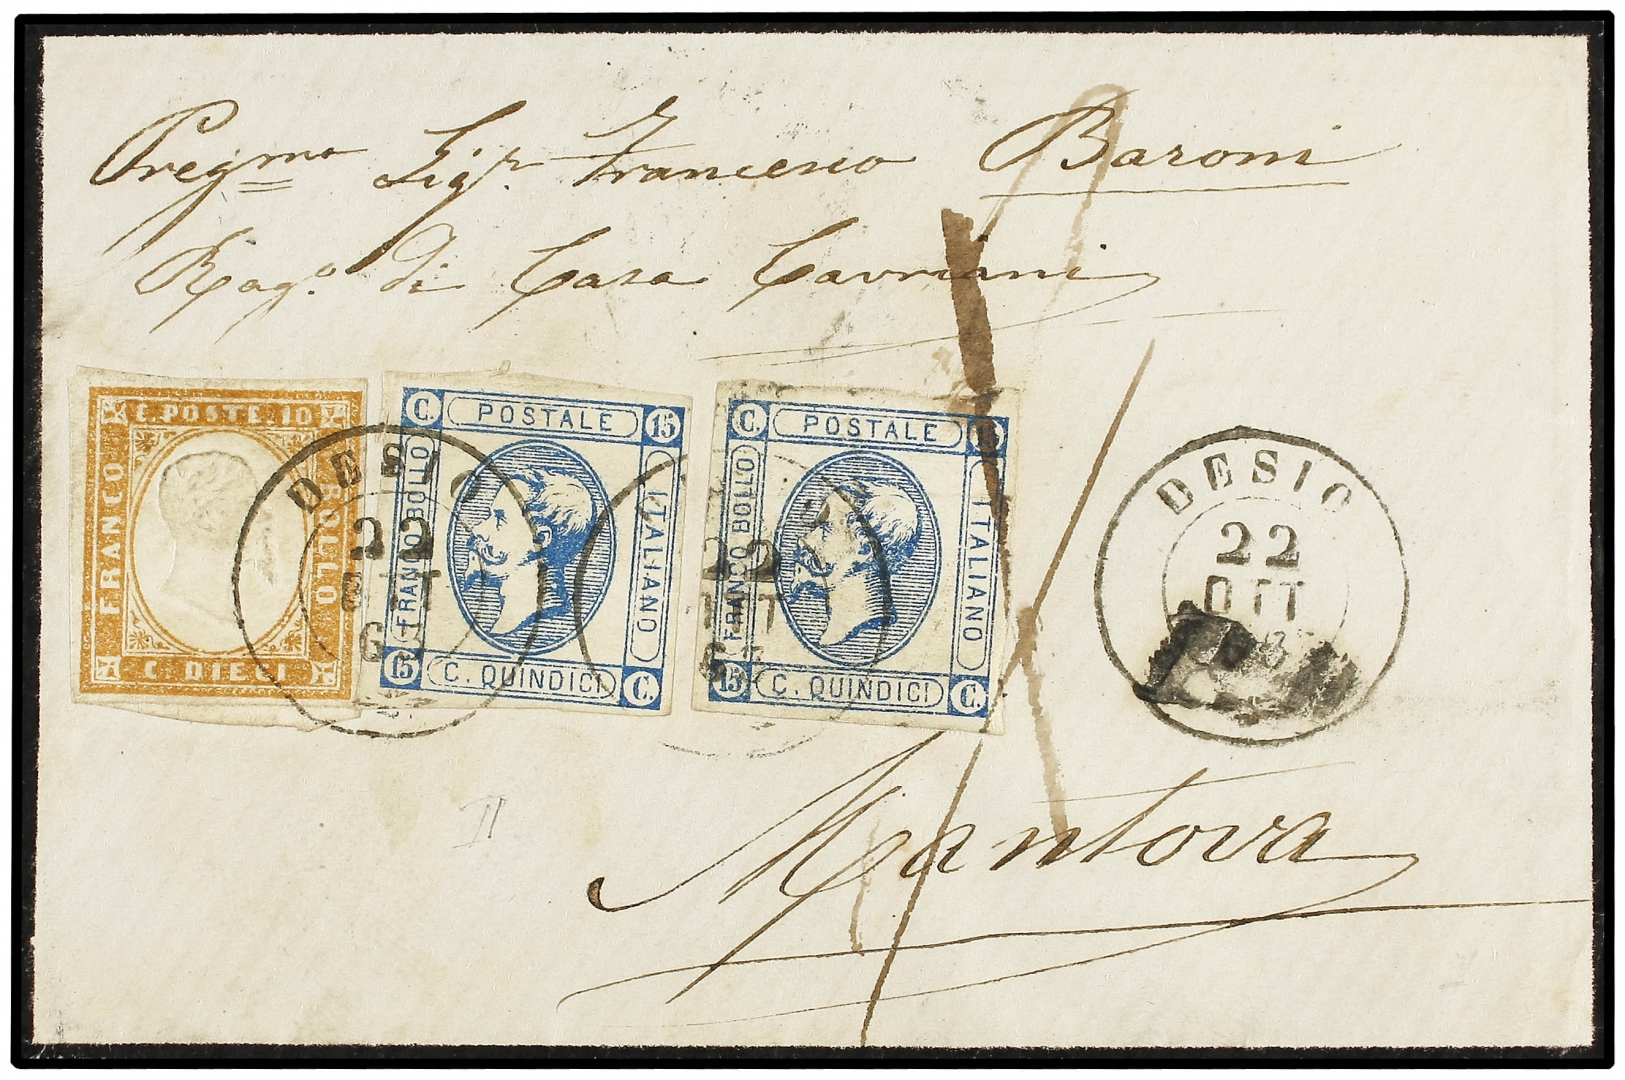 Pregmo Sigr. Francesco Baroni
Rago. di Casa Cavriani
C. POSTE. 10
FRANCO
BOLLO
C. DIECI
C. POSTALE 15
FRANCO BOLLO
ITALIANO
15 C. QUINDICI C.
C. POSTALE 15
FRANCO BOLLO
ITALIANO
15 C. QUINDICI C.
DESIO
22
OTT
63
22
OTT
63
DESIO
22
OTT
63
II
Mantova